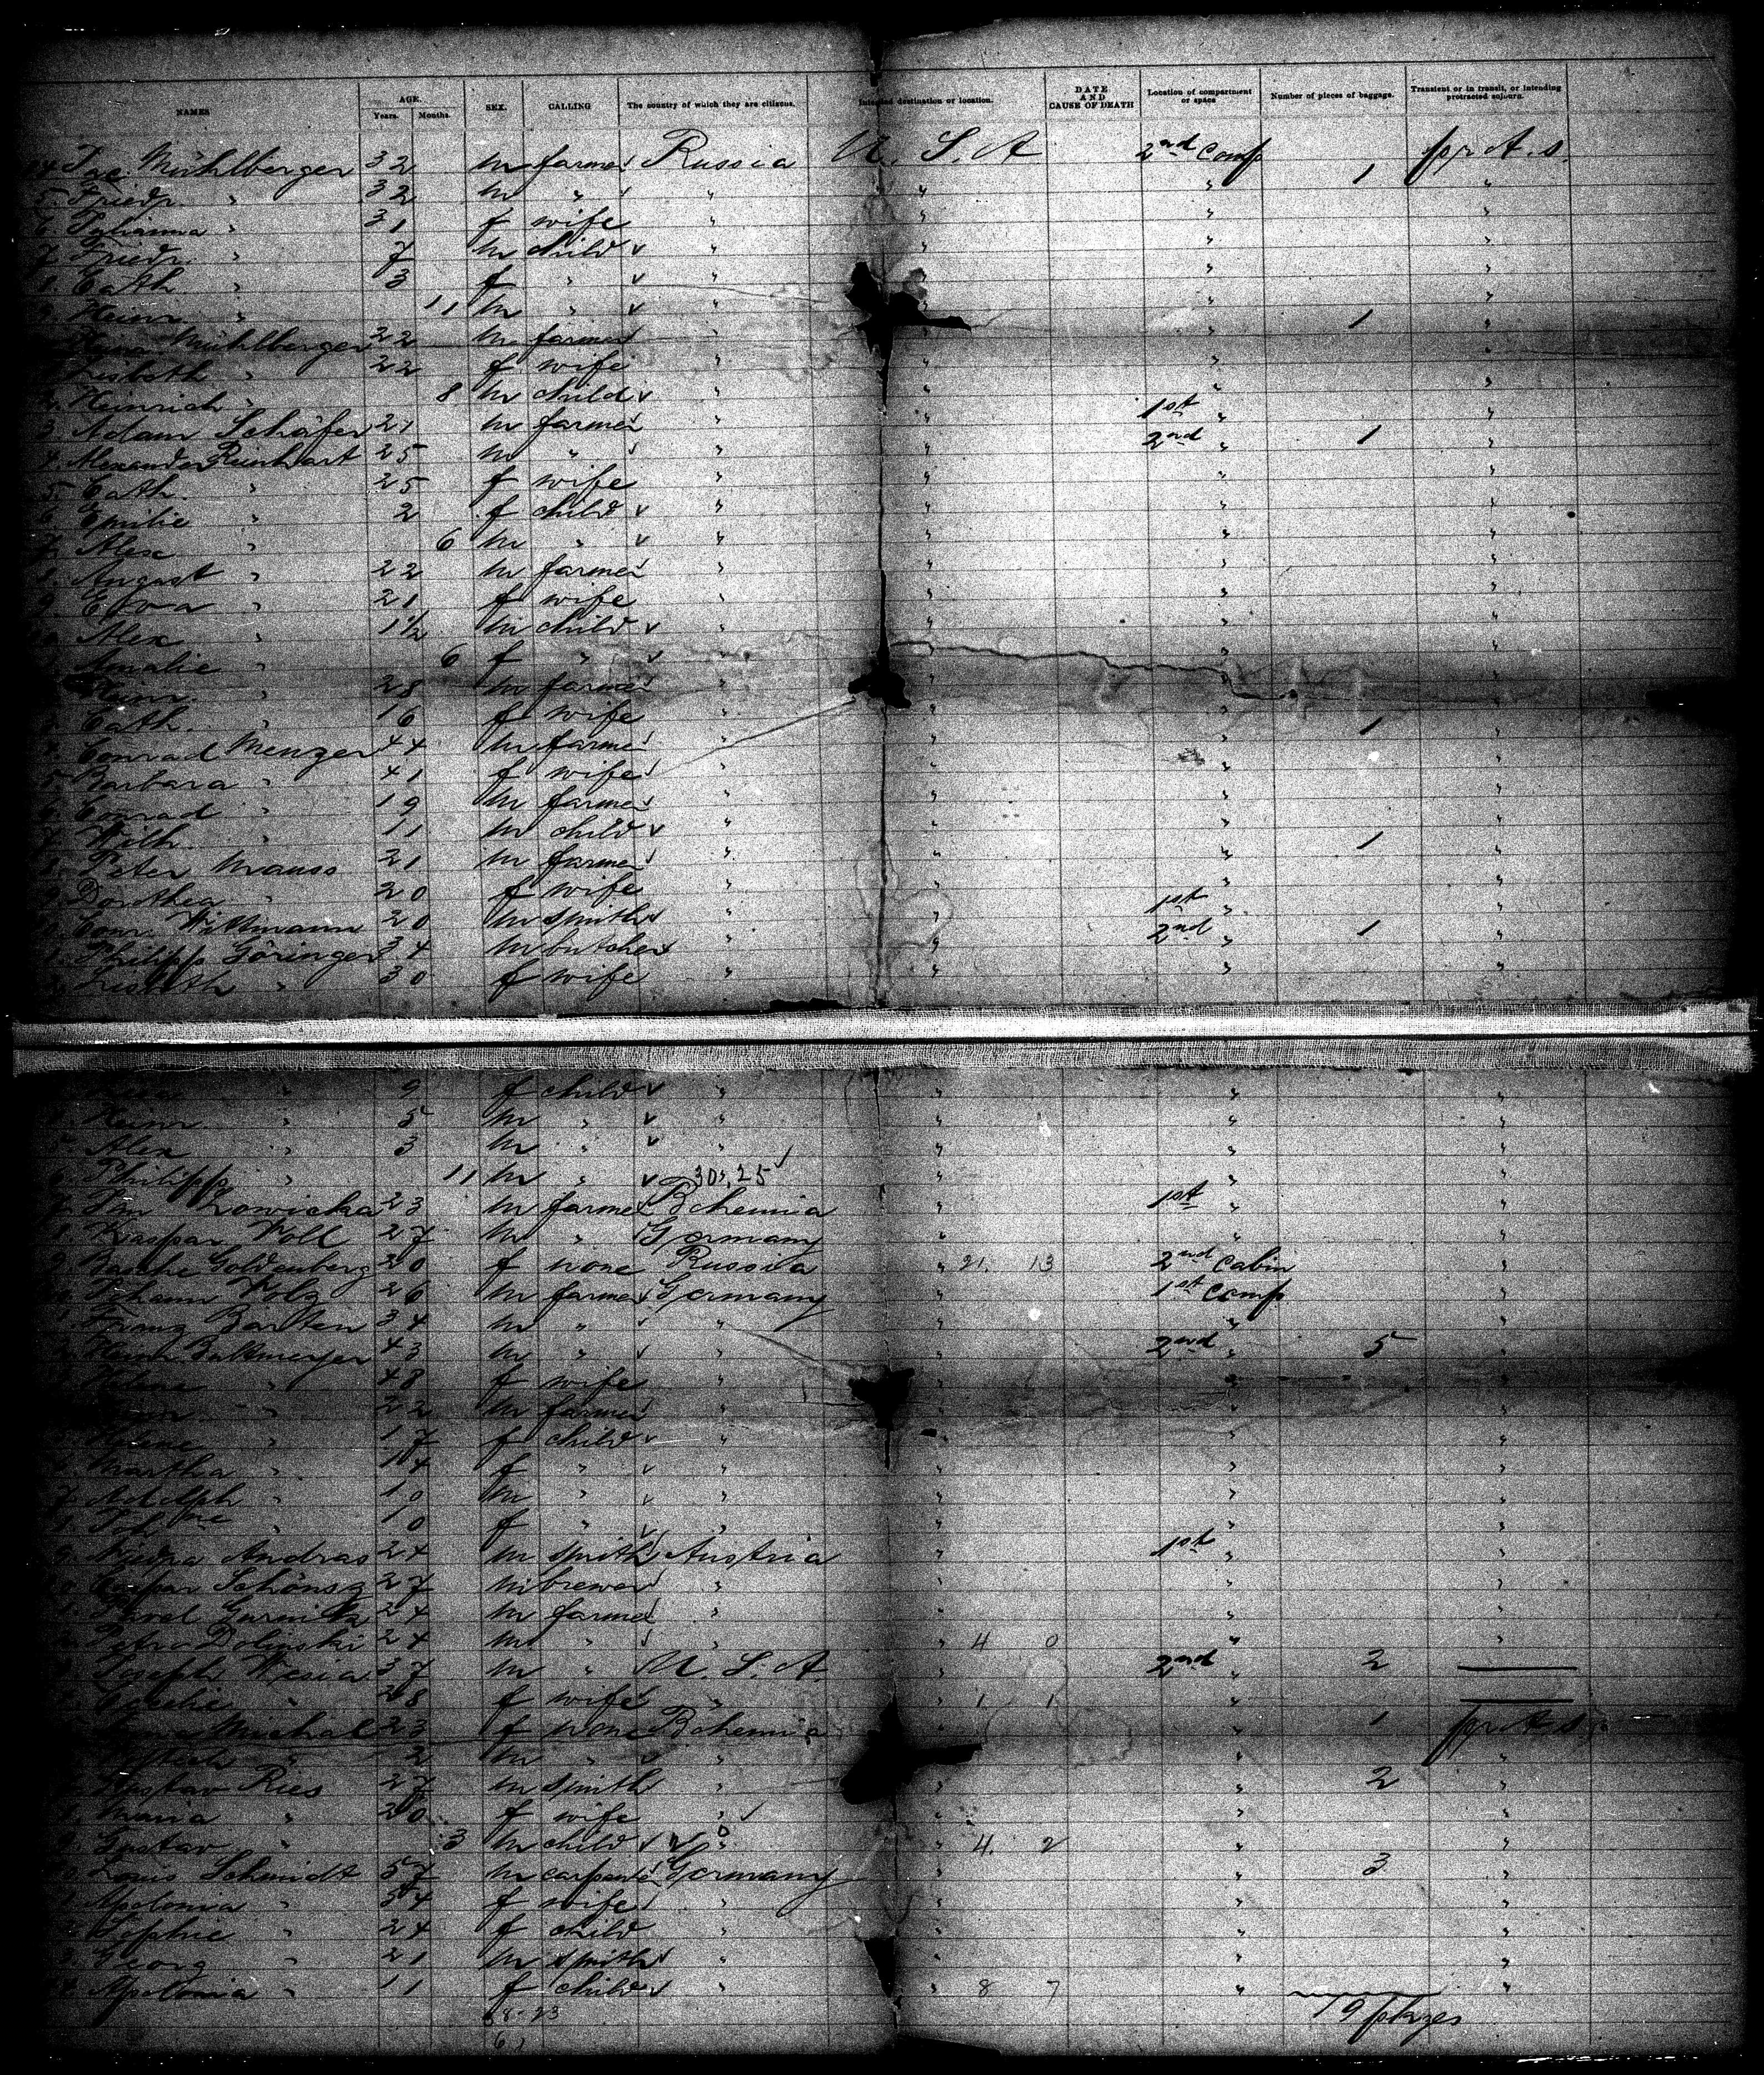 NAMES AGE. Years. Months. SEX. CALLING The country of which they are citizens. Intended destination or location. DATE AND CAUSE OF DEATH Location of compartment or space Number of pieces of baggage. Transient or in transit, or intending protracted sojourn.
Jac. Mühlberger 32 m farmer Russia U. S. A 2nd Comp 1 pr. A. s.
5 Friedr. " 32 m " " " " "
6 Julianna " 31 f wife " " " "
7 Friedr. " 7 m child " " " "
8 Cath. " 3 f " " " " "
9 Heinr. " 11 m " " " " "
Mühlberger 22 m farmer " " " 1 "
Lisbeth " 22 f wife " " " "
2 Heinrich " 8 m child " " " "
3 Adam Schäfer 21 m farmer " " 1st " "
4 Alexander Reinhart 25 m " " " 2nd " 1 "
5 Cath. " 25 f wife " " " "
6 Emilie " 2 f child " " " "
7 Alex " 6 m " " " " "
8 August " 22 m farmer " " " "
9 Eva " 21 f wife " " " "
Alex " 1½ m child " " " "
Amalie " 6 f " " " " "
Heinr. " 25 m farmer " " " "
Cath. " 16 f wife " " " "
Conrad Menzer 44 m farmer " " " 1 "
5 Barbara " 41 f wife " " " "
6 Conrad " 19 m farmer " " " "
7 Wilh. " 11 m child " " " "
8 Peter Krauss 21 m farmer " " " 1 "
9 Dorothea " 20 f wife " " " "
Conr. Wittmann 20 m smith " " 1st " "
1 Philipp Göringer 34 m butcher " " 2nd " 1 "
2 Lisbeth " 30 f wife " " " "
" 9 f child " " " "
Heinr " 5 m " " " " "
Alex " 3 m " " " " "
6 Philipp " 11 m " 30, 25 " " "
7 Zowicka 23 m farmer Bohemia " 1st " "
8 Kaspar Voll 27 m " Germany " " "
9 Goldenberg 20 f none Russia " 21. 13 2nd Cabin "
Johann Volz 26 m farmer Germany " 1st Comp "
Franz Barten 34 m " " " " "
Heinr. Baltmeyer 43 m " " " 2nd " 5 "
Helene " 48 f wife " " " "
" 22 m farmer " " " "
5 Helene " 17 f child " " " "
Martha " 14 f " " " " "
7 Adolph " 10 m " " " " "
8 " 10 f " " " " "
9 Andras 24 m smith Austria " 1st " "
27 m brewer " " " "
Pavel 24 m farmer " " " "
Petro Dolinski 24 m " " " 4 0 " "
Joseph Wesia 37 m " U. S. A. " 2nd " 2 —
" 28 f wife " " 1 1 " —
Michal 23 f none Bohemia " " 1 pr A. s.
" 2 m " " " " "
Gustav Ries 27 m smith " " " 2 "
Maria " 20 f wife " " " "
9 Gustav " 3 m child " " 4. 2 " "
Louis Schmidt 57 m carpenter Germany " " 3 "
1 Apolonia " 54 f wife " " " "
Sophie " 24 f child " " " "
3 Georg " 21 m smith " " " "
4 Apolonia " 11 f child " " 8 7 " "
19 pkges